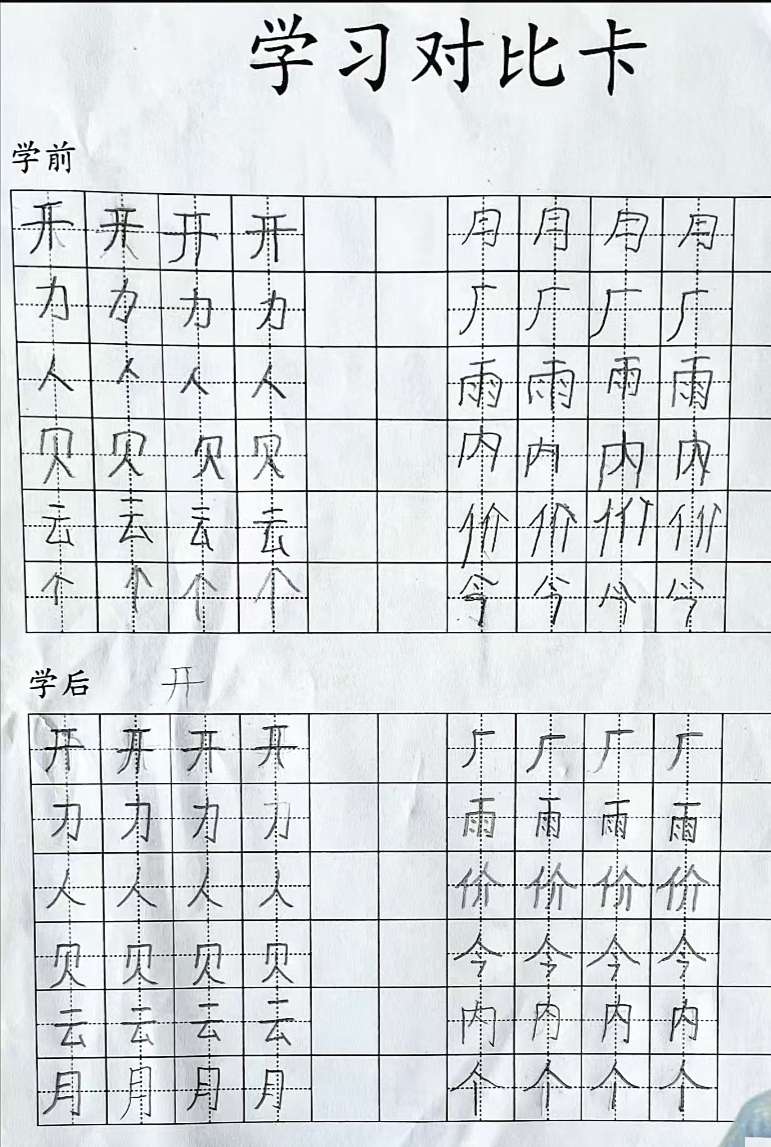 学习对比卡
学前
开 开 开 开 月 月 月 月
力 力 力 力 厂 厂 厂 厂
人 人 人 人 雨 雨 雨 雨
贝 贝 贝 贝 内 内 内 内
云 云 云 云 价 价 价 价
个 个 个 个 今 今 今 今
学后 开
开 开 开 开 厂 厂 厂 厂
力 力 力 力 雨 雨 雨 雨
人 人 人 人 价 价 价 价
贝 贝 贝 贝 今 今 今 今
云 云 云 云 内 内 内 内
月 月 月 月 个 个 个 个